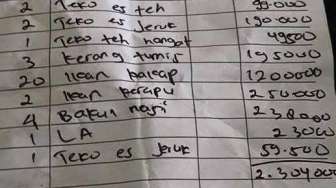 2 Teko es teh 99.000
2 Teko es Jeruk 190.000
1 Teko teh hangat 49500
3 Kerang tumis 195000
20 Ikan kakap 1200000
2 Ikan kerapu 250000
4 Bakul nasi 238000
1 LA 23000
1 Teko es jeruk 59.500
2.30400